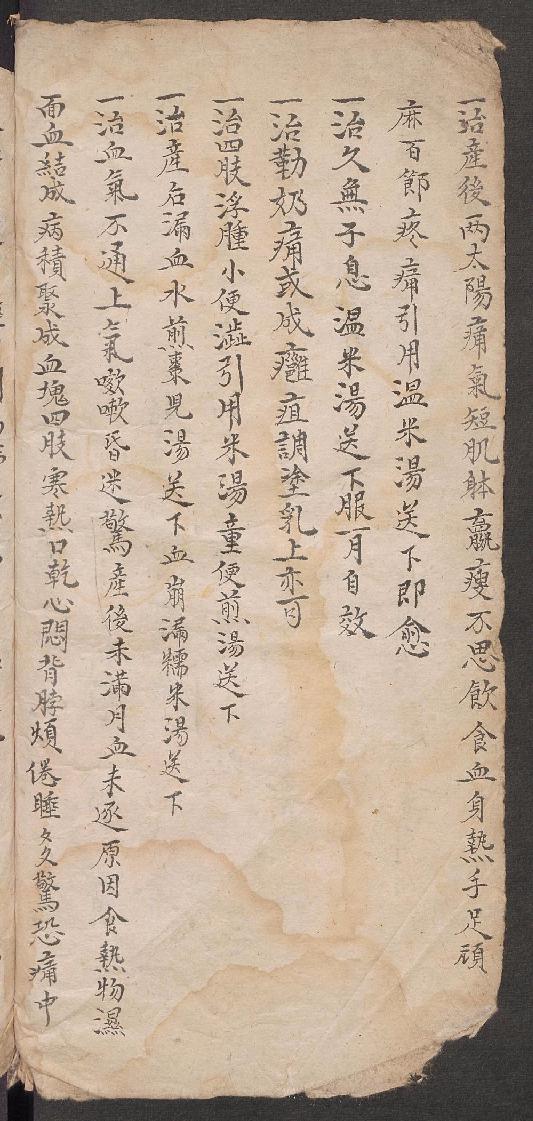 一治產後兩太陽痛氣短肌躰羸瘦不思飲食血身熱手足頑
麻百節疼痛引用温米湯送下即愈
一治久無子息温米湯送下服一月自效
一治勒奶痛或成癰疽調塗乳上亦可
一治四肢浮腫小便澁引用米湯童便煎湯送下
一治產後漏血水煎棗兒湯送下血崩漏糯米湯送下
一治血氣不通上氣嗽昏迷驚產後未滿月血未逐原因食熱物濕
面血結成病積聚成血塊四肢寒熱口乾心悶背脖煩倦睡多驚恐痛中